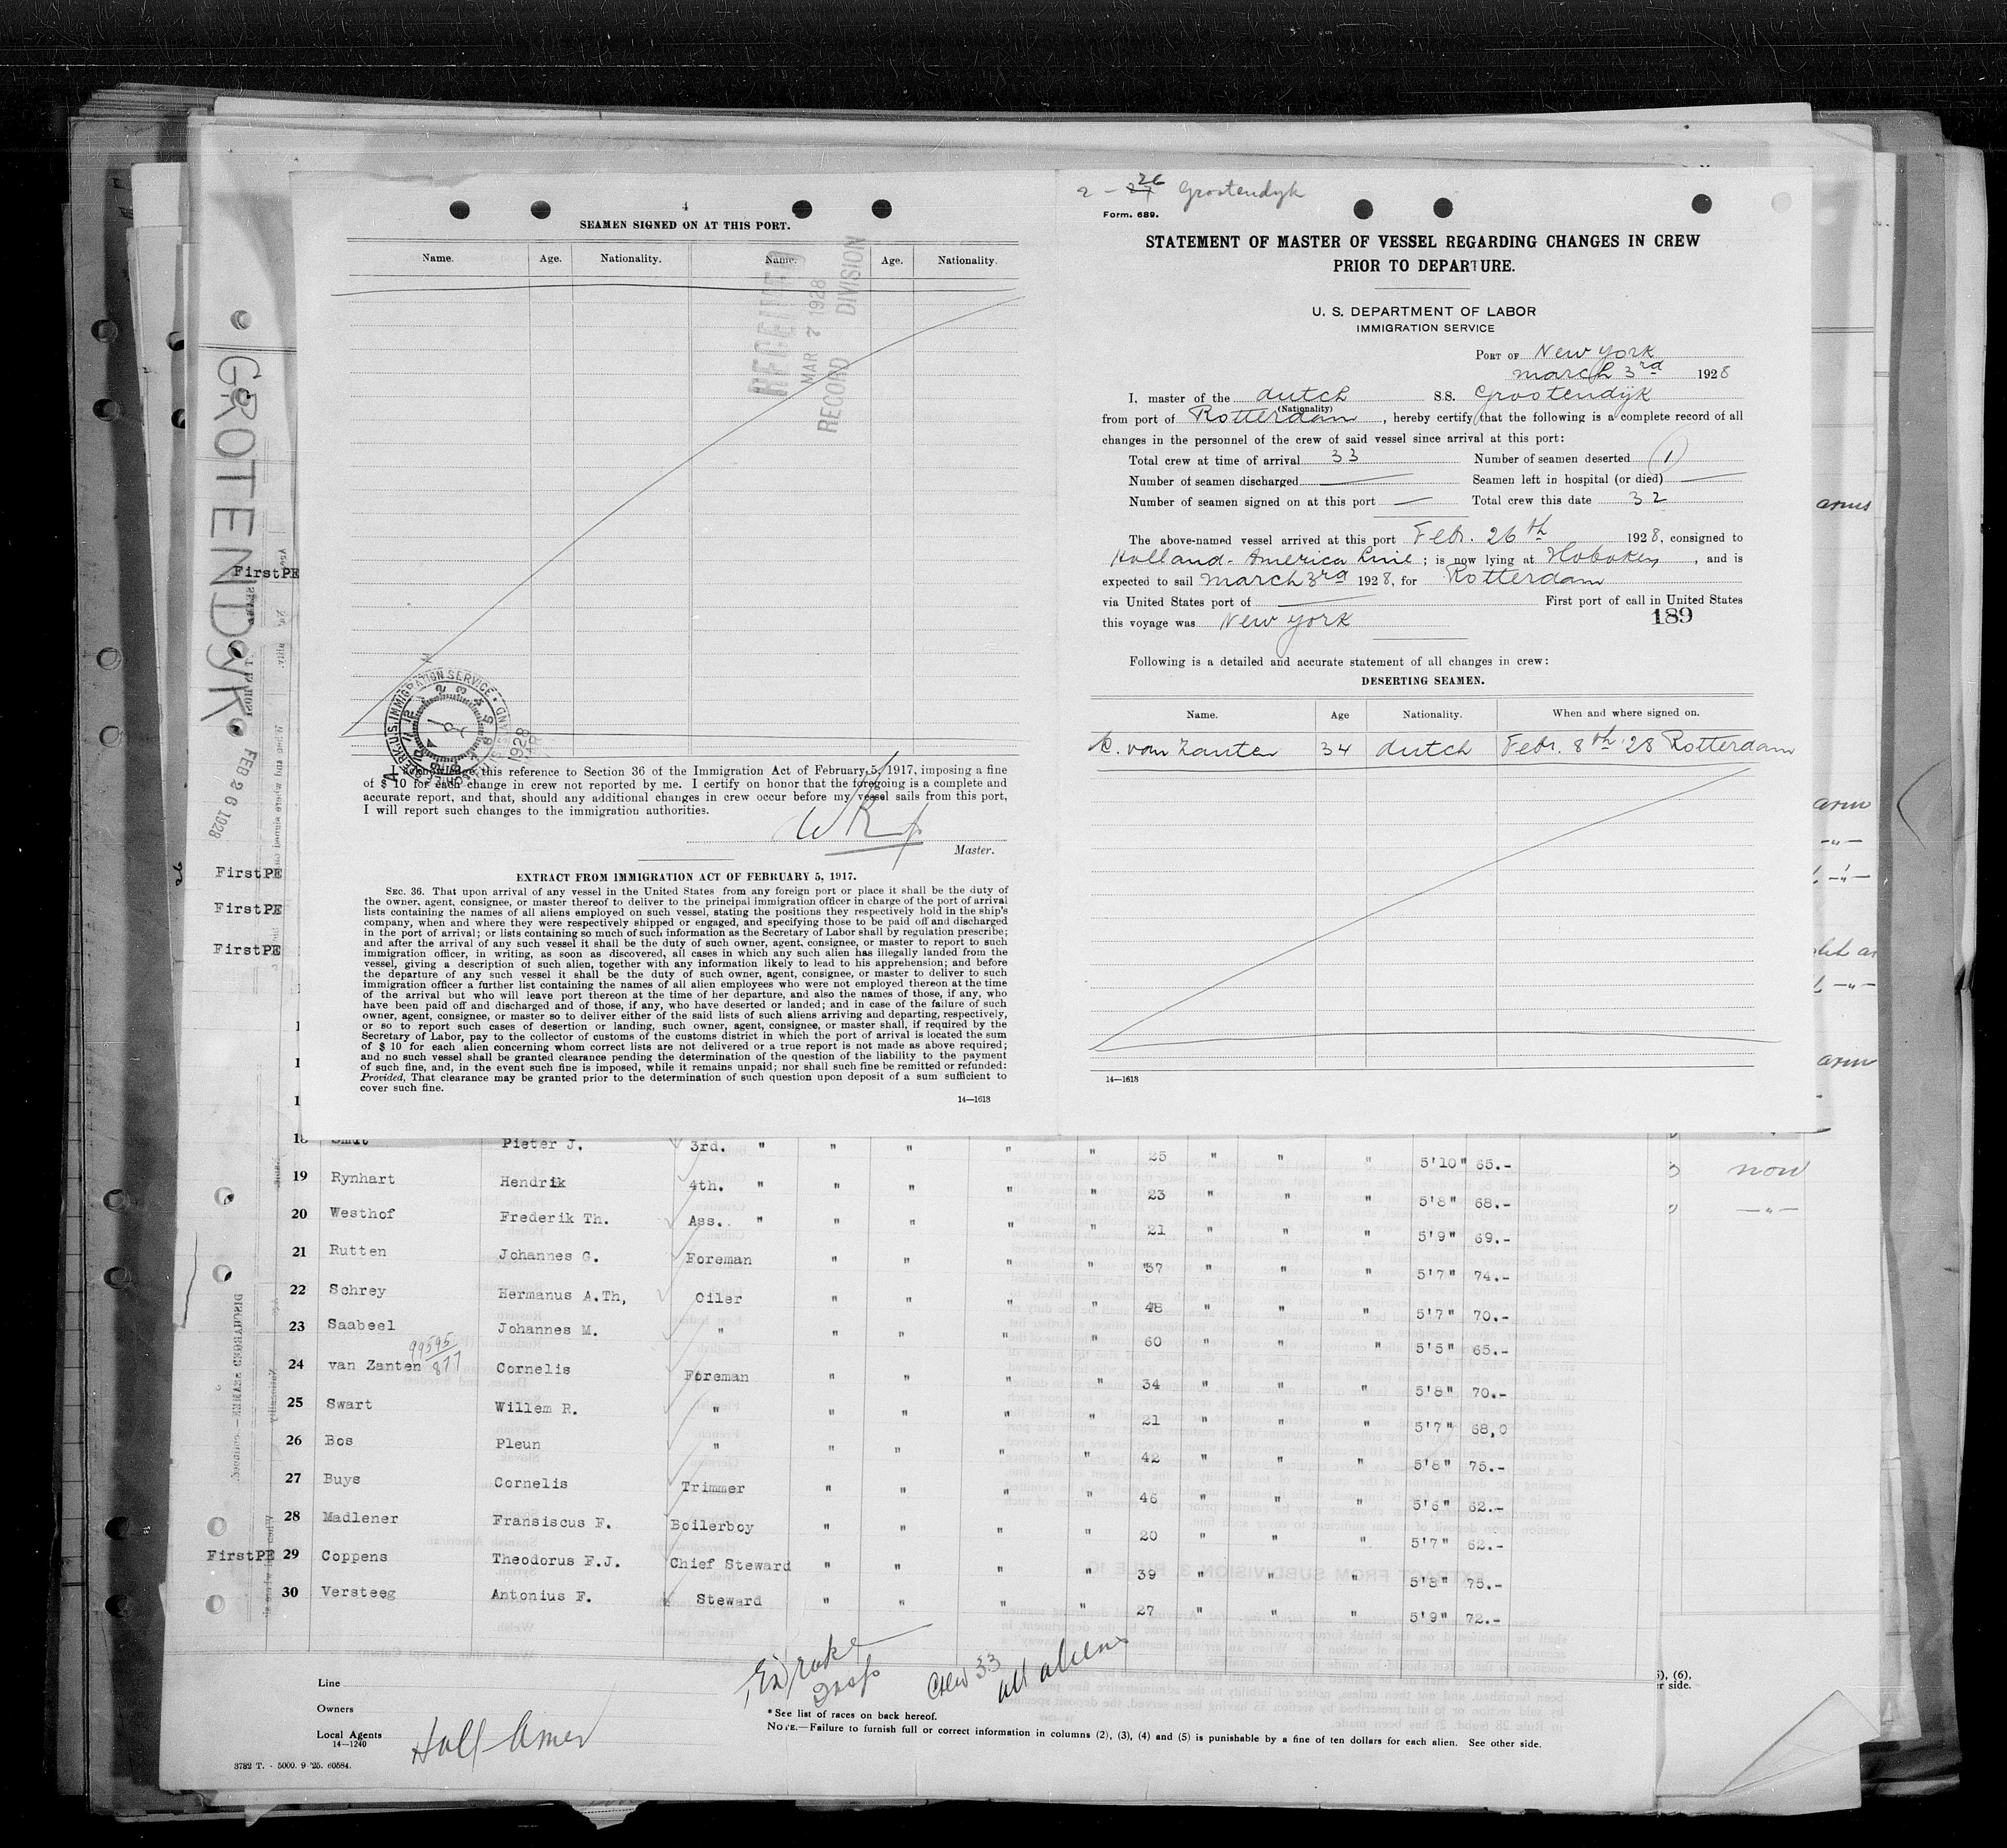 4
SEAMEN SIGNED ON AT THIS PORT.
Name. Age. Nationality. Name. Age. Nationality.
RECEIVED
MAR 7 1928
RECORD DIVISION
1928
I acknowledge this reference to Section 36 of the Immigration Act of February 5, 1917, imposing a fine
of $ 10 for each change in crew not reported by me. I certify on honor that the foregoing is a complete and
accurate report, and that, should any additional changes in crew occur before my vessel sails from this port,
I will report such changes to the immigration authorities.
Master.
EXTRACT FROM IMMIGRATION ACT OF FEBRUARY 5, 1917.
SEC. 36. That upon arrival of any vessel in the United States from any foreign port or place it shall be the duty of
the owner, agent, consignee, or master thereof to deliver to the principal immigration officer in charge of the port of arrival
lists containing the names of all aliens employed on such vessel, stating the positions they respectively hold in the ship's
company, when and where they were respectively shipped or engaged, and specifying those to be paid off and discharged
in the port of arrival; or lists containing so much of such information as the Secretary of Labor shall by regulation prescribe;
and after the arrival of any such vessel it shall be the duty of such owner, agent, consignee, or master to report to such
immigration officer, in writing, as soon as discovered, all cases in which any such alien has illegally landed from the
vessel, giving a description of such alien, together with any information likely to lead to his apprehension; and before
the departure of any such vessel it shall be the duty of such owner, agent, consignee, or master to deliver to such
immigration officer a further list containing the names of all alien employees who were not employed thereon at the time
of the arrival but who will leave port thereon at the time of her departure, and also the names of those, if any, who
have been paid off and discharged and of those, if any, who have deserted or landed; and in case of the failure of such
owner, agent, consignee, or master so to deliver either of the said lists of such aliens arriving and departing, respectively,
or so to report such cases of desertion or landing, such owner, agent, consignee, or master shall, if required by the
Secretary of Labor, pay to the collector of customs of the customs district in which the port of arrival is located the sum
of $ 10 for each alien concerning whom correct lists are not delivered or a true report is not made as above required;
and no such vessel shall be granted clearance pending the determination of the question of the liability to the payment
of such fine, and, in the event such fine is imposed, while it remains unpaid; nor shall such fine be remitted or refunded:
Provided, That clearance may be granted prior to the determination of such question upon deposit of a sum sufficient to
cover such fine.
14—1618
2 - 27 26 Grootendyk
Form. 689.
STATEMENT OF MASTER OF VESSEL REGARDING CHANGES IN CREW
PRIOR TO DEPARTURE.
U. S. DEPARTMENT OF LABOR
IMMIGRATION SERVICE
PORT OF New York
march 3rd 1928
I, master of the dutch SS. Grootendyk
(Nationality)
from port of Rotterdam, hereby certify that the following is a complete record of all
changes in the personnel of the crew of said vessel since arrival at this port:
Total crew at time of arrival 33 Number of seamen deserted 1
Number of seamen discharged — Seamen left in hospital (or died) —
Number of seamen signed on at this port — Total crew this date 32
The above-named vessel arrived at this port Febr. 26th 1928, consigned to
Holland-America Line; is now lying at Hoboken, and is
expected to sail march 3rd 1928, for Rotterdam
via United States port of — First port of call in United States
this voyage was New York
189
Following is a detailed and accurate statement of all changes in crew:
DESERTING SEAMEN.
Name. Age Nationality. When and where signed on.
C. van Zanten 34 dutch Febr. 8th '28 Rotterdam
14—1618
GROTENDYK
FEB 26 1928
FirstPE
FirstPE
FirstPE
FirstPE
18 Smit Pieter J. 3rd. " " " " " 25 " " " 5'10" 65.-
19 Rynhart Hendrik 4th. " " " " " 23 " " " 5'8" 68.-
20 Westhof Frederik Th. Ass. " " " " " 21 " " " 5'9" 69.-
21 Rutten Johannes G. Foreman " " " " 37 " " " 5'7" 74.-
22 Schrey Hermanus A.Th, Oiler " " " " 48 " " " 5'7" 70.-
23 Saabeel Johannes M. " " " " " 60 " " " 5'5" 65.-
99595/877
24 van Zanten Cornelis Foreman " " " " 34 " " " 5'8" 70.-
25 Swart Willem R. " " " " " 21 " " " 5'7" 68,0
26 Bos Pleun " " " " " 42 " " " 5'8" 75.-
27 Buys Cornelis Trimmer " " " " 46 " " " 5'6" 62.-
28 Madlener Fransiscus F. Boilerboy " " " " 20 " " " 5'7" 62.-
FirstPE 29 Coppens Theodorus F.J. Chief Steward " " " " 39 " " " 5'8" 75.-
30 Versteeg Antonius F. Steward " " " " 27 " " " 5'9" 72.-
Crew 33
all aliens
Line
Owners
Local Agents
14—1240
Holl Amer
* See list of races on back hereof.
NOTE.—Failure to furnish full or correct information in columns (2), (3), (4) and (5) is punishable by a fine of ten dollars for each alien. See other side.
3782 T. - 5000. 9-'25. 60584.
arms
arm
arm
now